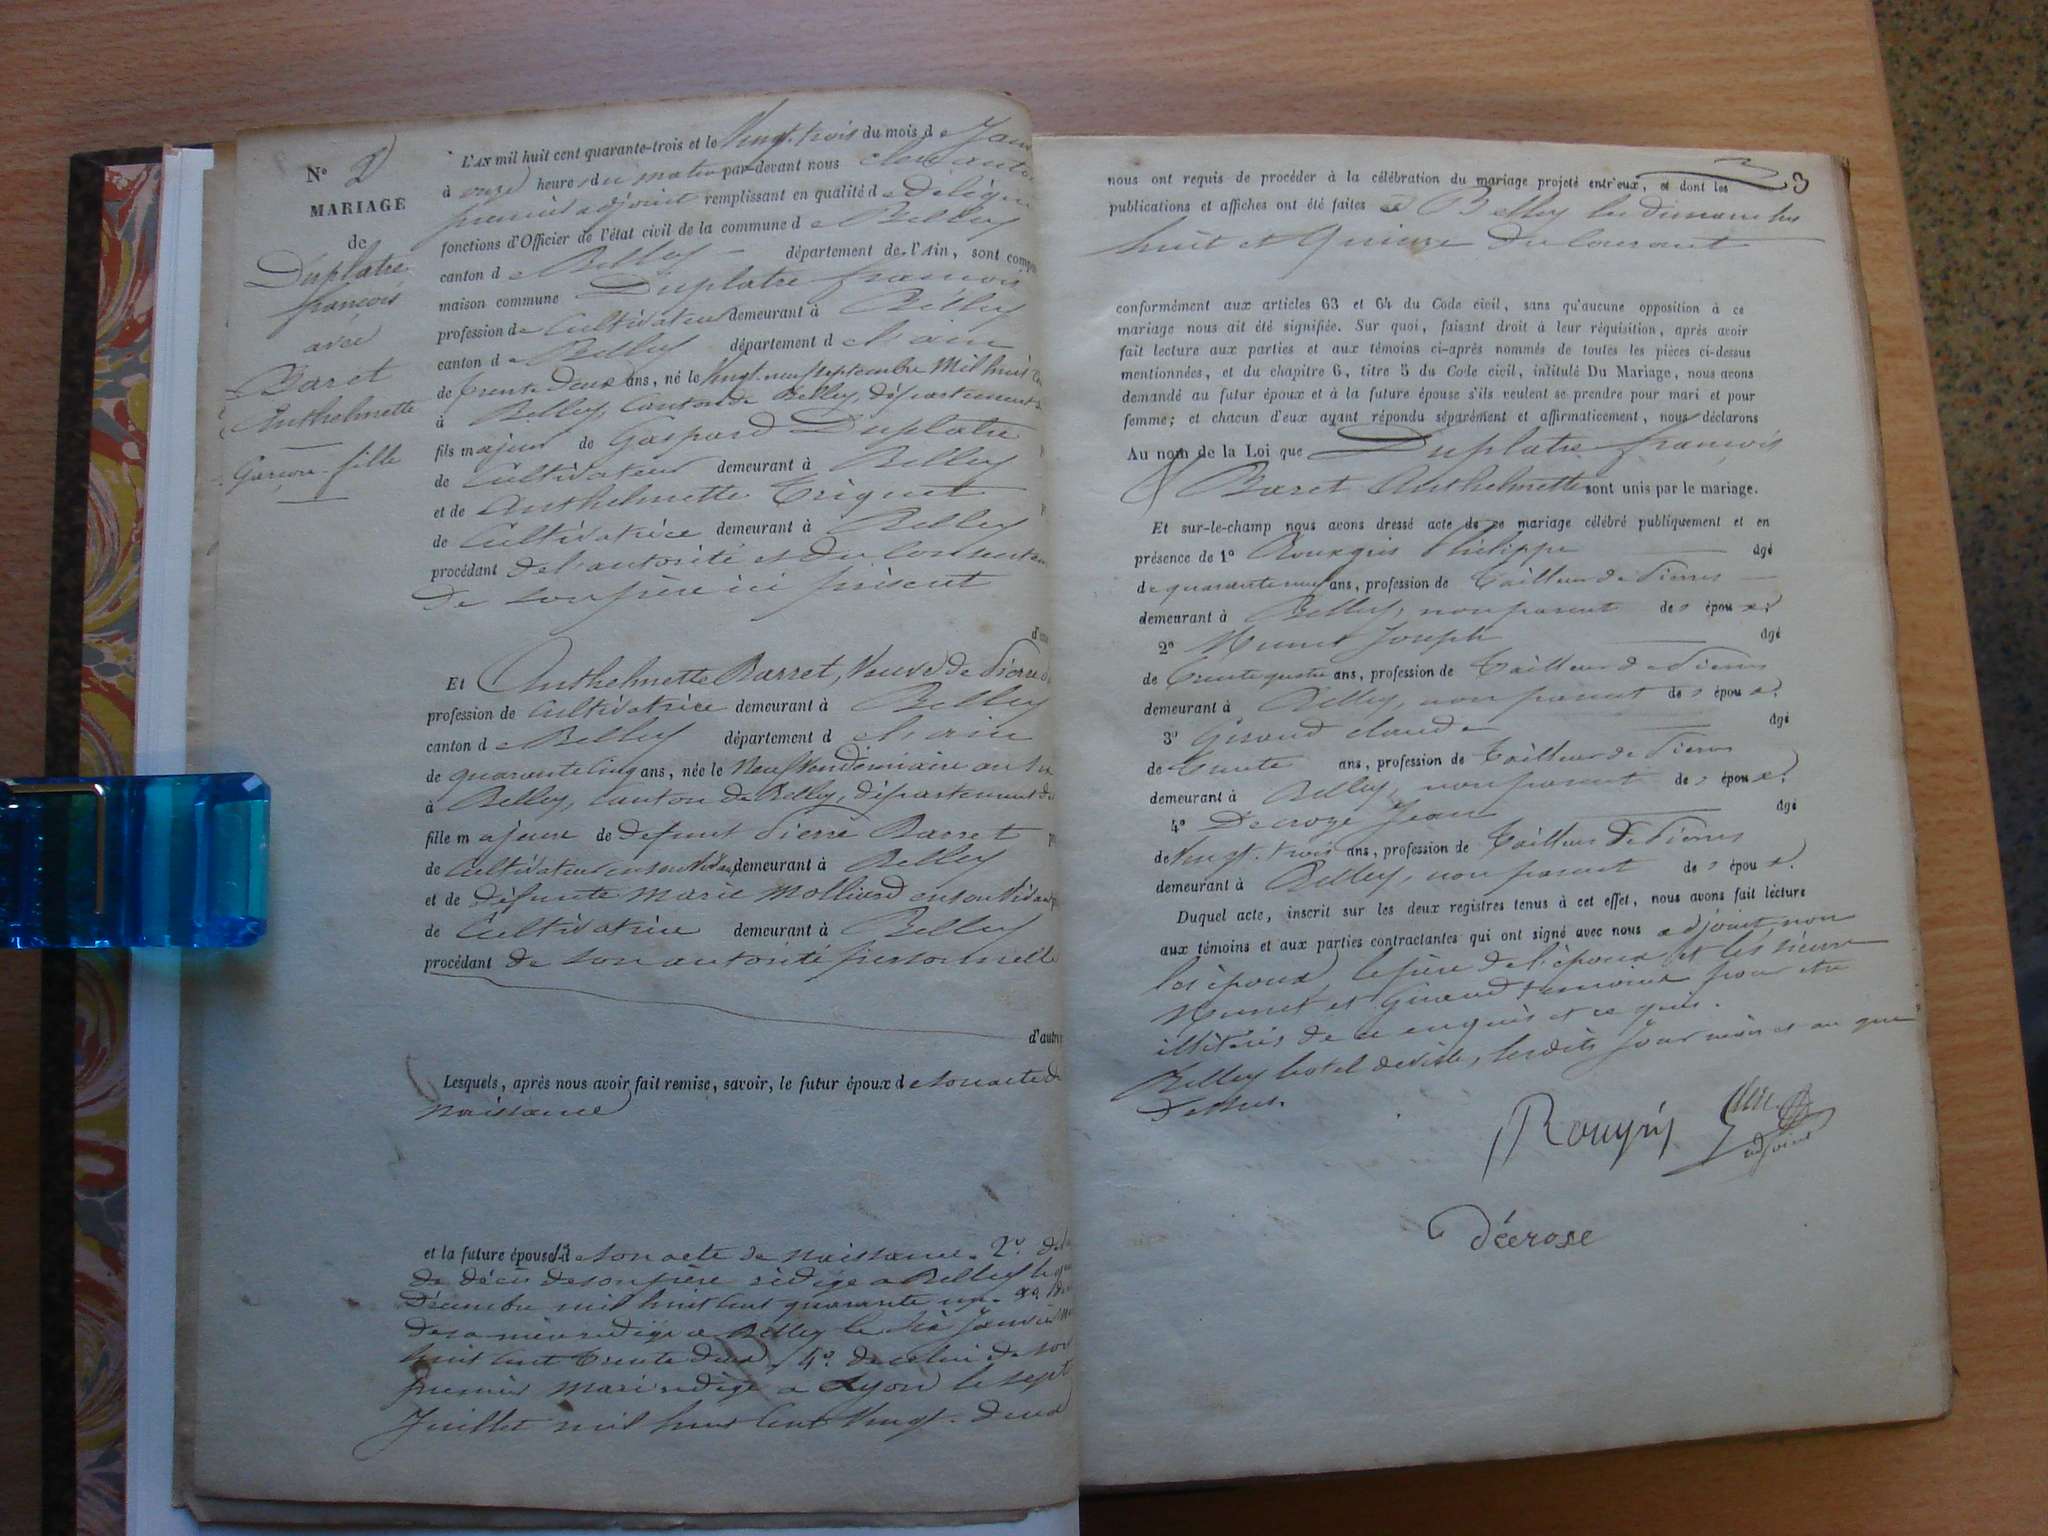 N° 2
MARIAGE
de
Duplatre
françois
avec
Baret
Anthelmette
Garçon - fille
L'AN mil huit cent quarante-trois et le Vingt-trois du mois de Janv
à onze heures du matin par-devant nous
premier adjoint remplissant en qualité de Délégué
fonctions d'Officier de l'état civil de la commune de Belley
canton de Belley département de l'Ain, sont comp
maison commune Duplatre françois
profession de Cultivateur demeurant à Belley
canton de Belley département de l'ain
de trente deux ans, né le Vingt-neuf septembre Mil huit
à Belley, Canton de Belley, département
fils majeur de Gaspard Duplatre
de Cultivateur demeurant à Belley
et de Anthelmette Triquet
de Cultivatrice demeurant à Belley
procédant de l'autorité et du consentem
de son père ici présent
Et Anthelmette Barret, Veuve de Pierre
profession de Cultivatrice demeurant à Belley
canton de Belley département de l'ain
de quarante cinq ans, née le Neuf Vendémiaire an
à Belley, Canton de Belley, département de
fille majeure de defunt Pierre Barret
de Cultivateur en son vivant demeurant à Belley
et de défunte Marie Molliard en son vivant
de Cultivatrice demeurant à Belley
procédant de son autorité personnelle
d'autre
Lesquels, après nous avoir fait remise, savoir, le futur époux de son acte de
naissance
et la future épouse 1° de son acte de naissance. 2°. de
de décès de son père rédigé a Belley le
Décembre mil huit cent quarante un.
de sa mère rédigé a Belley le six Janvier
huit cent trente deux. 4°. de celui de son
premier mari rédigé a Lyon le sept
Juillet mil huit cent Vingt-deux
3
nous ont requis de procéder à la célébration du mariage projeté entr'eux, et dont les
publications et affiches ont été faites à Belley les dimanches
huit et Quinze du Courant
conformément aux articles 63 et 64 du Code civil, sans qu'aucune opposition à ce
mariage nous ait été signifiée. Sur quoi, faisant droit à leur réquisition, après avoir
fait lecture aux parties et aux témoins ci-après nommés de toutes les pièces ci-dessus
mentionnées, et du chapitre 6, titre 5 du Code civil, intitulé Du Mariage, nous avons
demandé au futur époux et à la future épouse s'ils veulent se prendre pour mari et pour
femme; et chacun d'eux ayant répondu séparément et affirmativement, nous déclarons
Au nom de la Loi que Duplatre françois
& Baret Anthelmette sont unis par le mariage.
Et sur-le-champ nous avons dressé acte de ce mariage célébré publiquement et en
présence de 1° Rougris Philippe âgé
de quarante neuf ans, profession de Tailleur de Pierres
demeurant à Belley, non parent des époux;
2° Munet Joseph âgé
de trente quatre ans, profession de Tailleur de Pierres
demeurant à Belley, non parent des époux.
3° Giraud Claude âgé
de trente ans, profession de Tailleur de Pierres
demeurant à Belley, non parent des époux;
4° Decroze Jean âgé
de Vingt-trois ans, profession de Tailleur de Pierres
demeurant à Belley, non parent des époux.
Duquel acte, inscrit sur les deux registres tenus à cet effet, nous avons fait lecture
aux témoins et aux parties contractantes qui ont signé avec nous adjoint, non
les époux, le père de l'époux et les sieurs
Munet et Giraud témoins pour être
illitérés de ce enquis et requis.
Belley hotel de ville, lesdits Jour mois et an que
dessus.
Rougris
adjoint
décrose